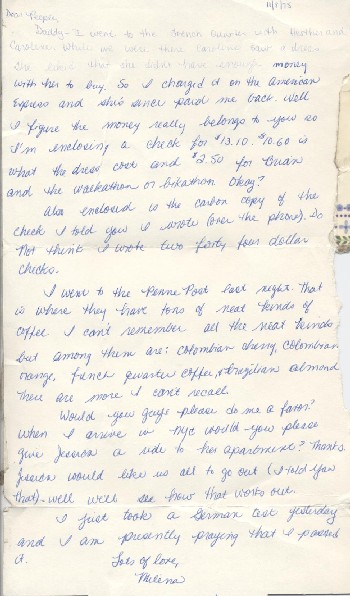 11/1/75
Dear People,
Daddy - I went to the French Quarter with Heather and
Caroline. While we were there Caroline saw a dress
she didn't have enough money
with her to buy. So I charged it on the American
Express and she's since paid me back. Well
I figure the money really belongs to you so
I'm enclosing a check for $13.10. $10.60 is
what the dress cost and $2.50 for Brian
and the walkathon or bikathon. Okay?
Also enclosed is the carbon copy of the
check I told you I wrote (over the phone). Do
not think I wrote two forty four dollar
checks.
I went to the Penne Post last night. That
is where they have tons of neat kinds of
coffee. I can't remember all the neat kinds
but among them are: colombian cherry, colombian
orange, french quarter coffee, & brazilian almond
There are more I can't recall.
Would you guys please do me a favor?
When I arrive in NYC would you please
give Jessica a ride to her apartment? Thanks.
Jessica would like us all to go out (I told you
that) - well we'll see how that works out.
I just took a German test yesterday
and I am presently praying that I passed
it.
Lots of love,
Milena